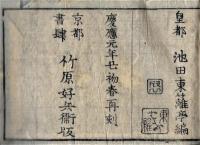 皇都 池田東籬亭編
慶應元年丑初春再刻
京都書肆 竹原好兵衛版